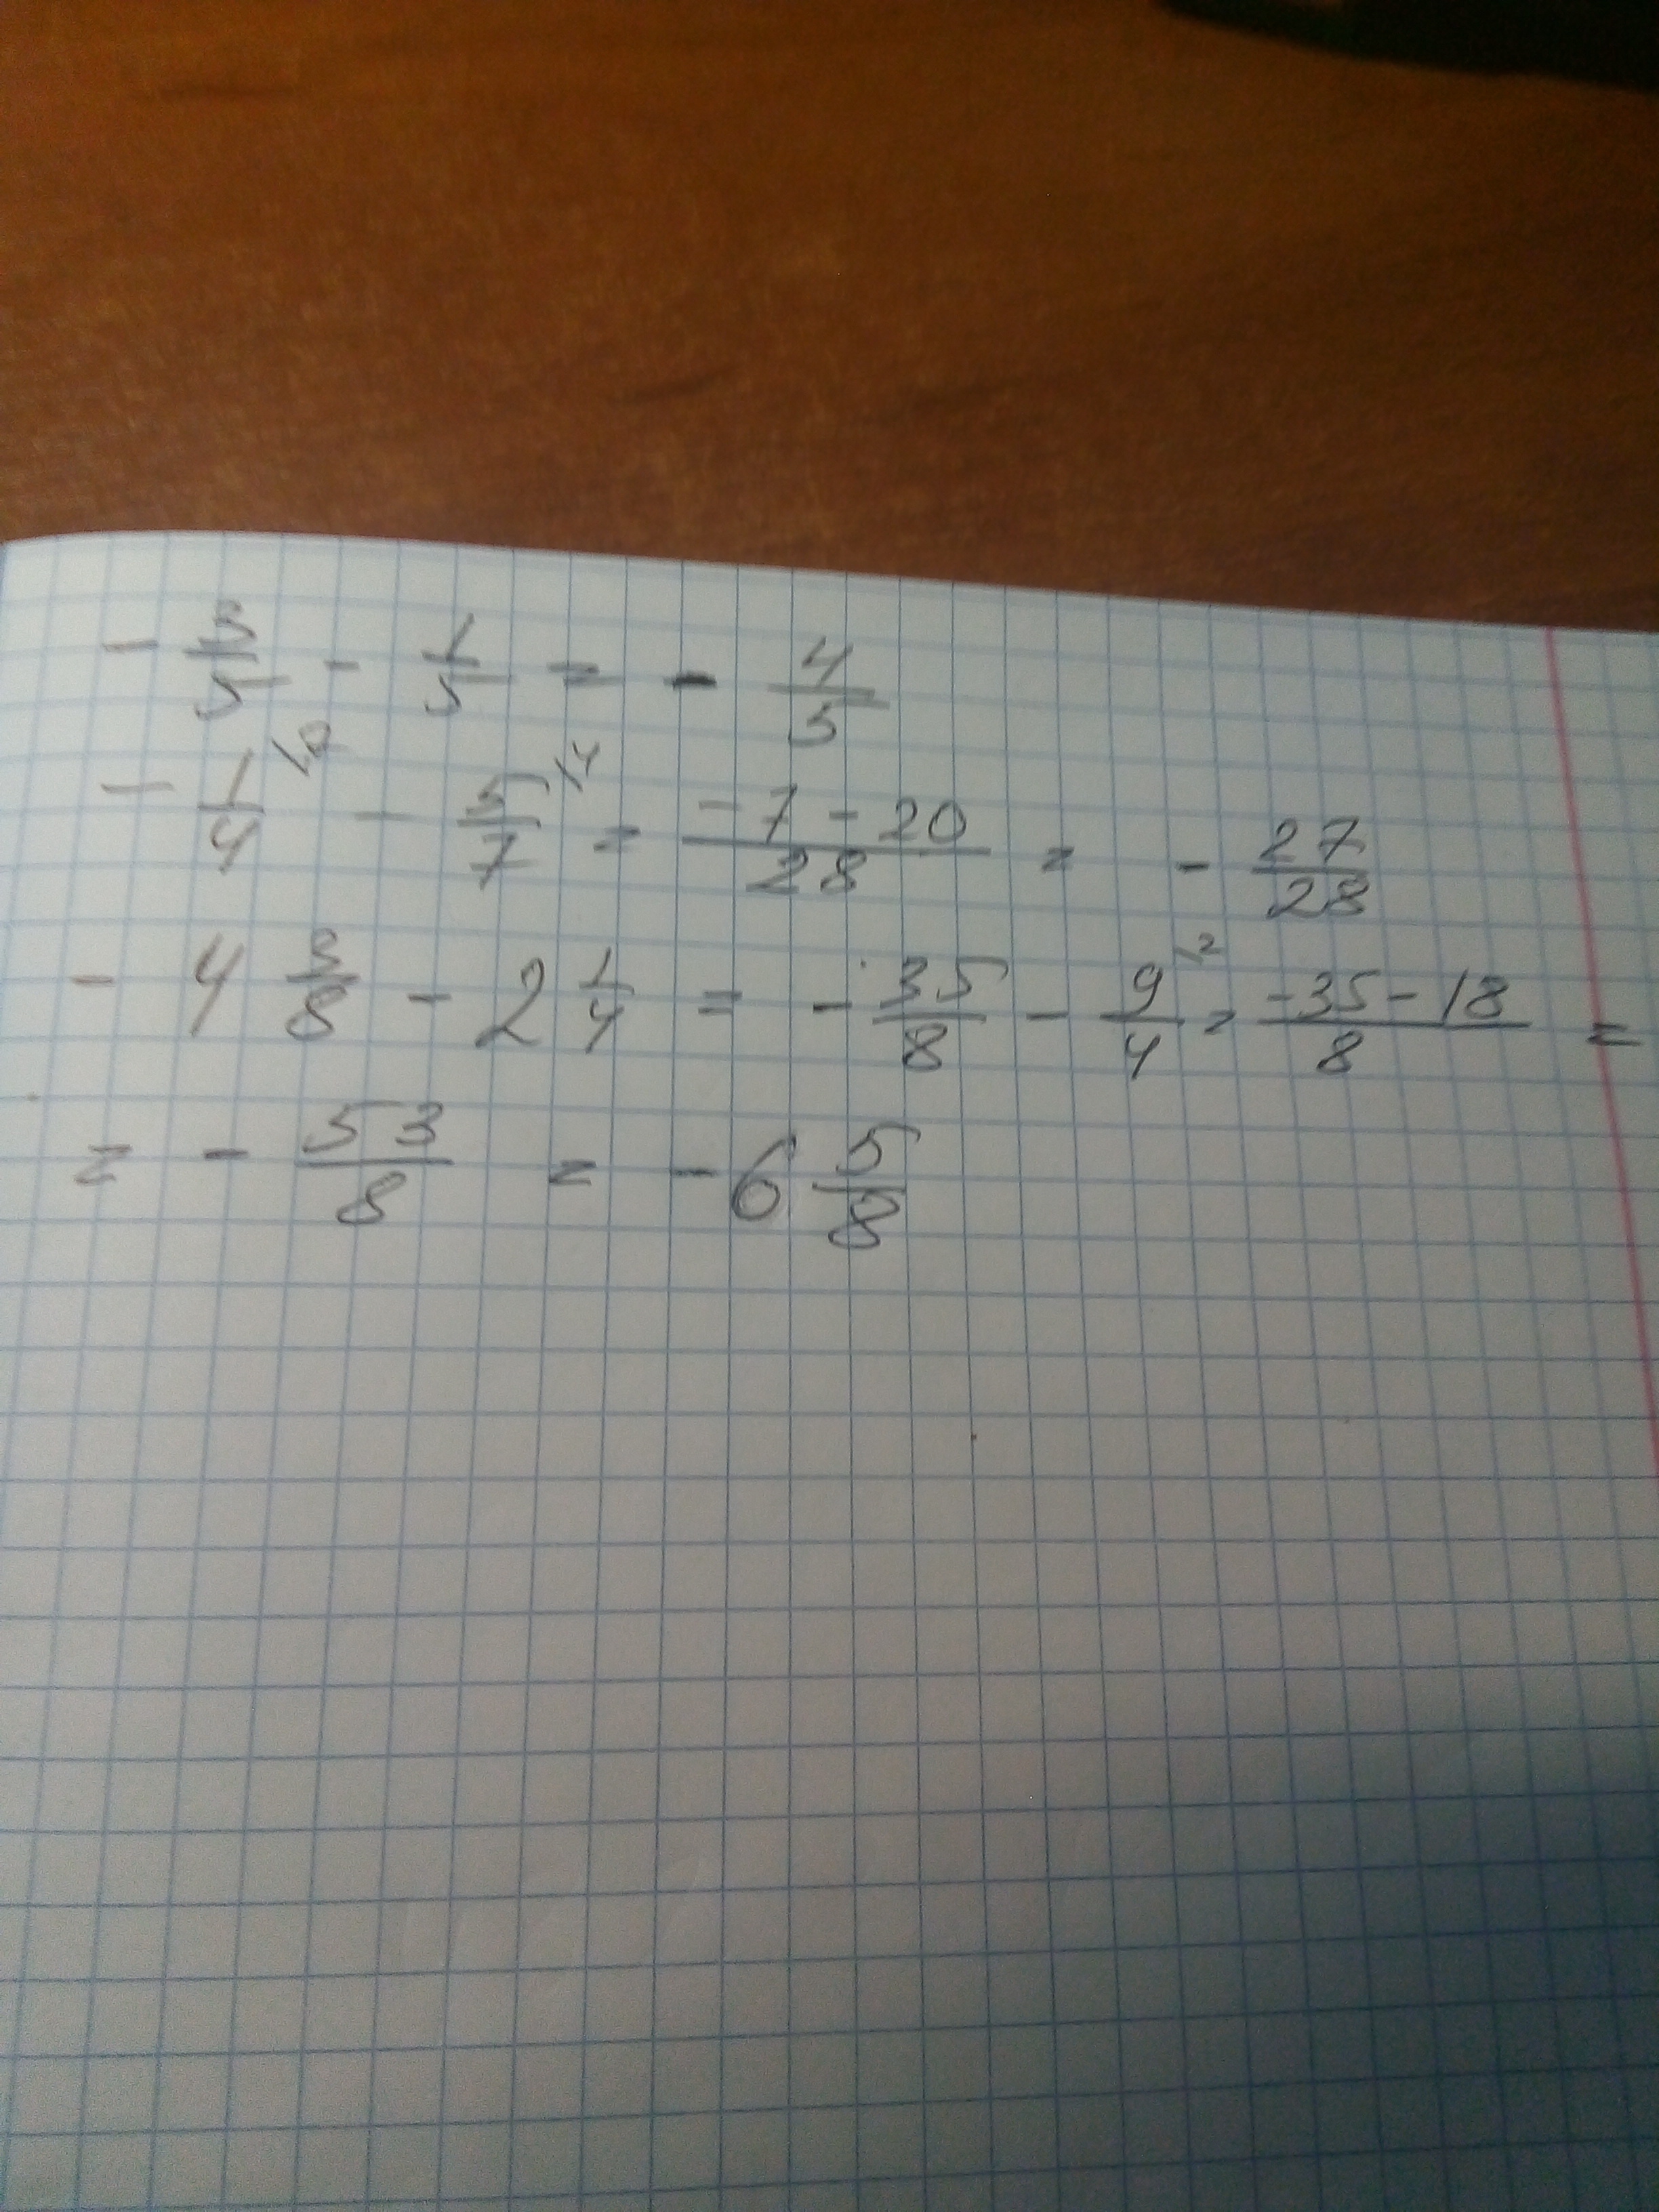 - 3/5 - 1/5 = - 4/5
- 1/4 \7 - 5/7 \4 = (-7-20)/28 = - 27/28
- 4 3/8 - 2 1/4 = - 35/8 - 9/4 \2 = (-35-18)/8 =
= - 53/8 = -6 5/8